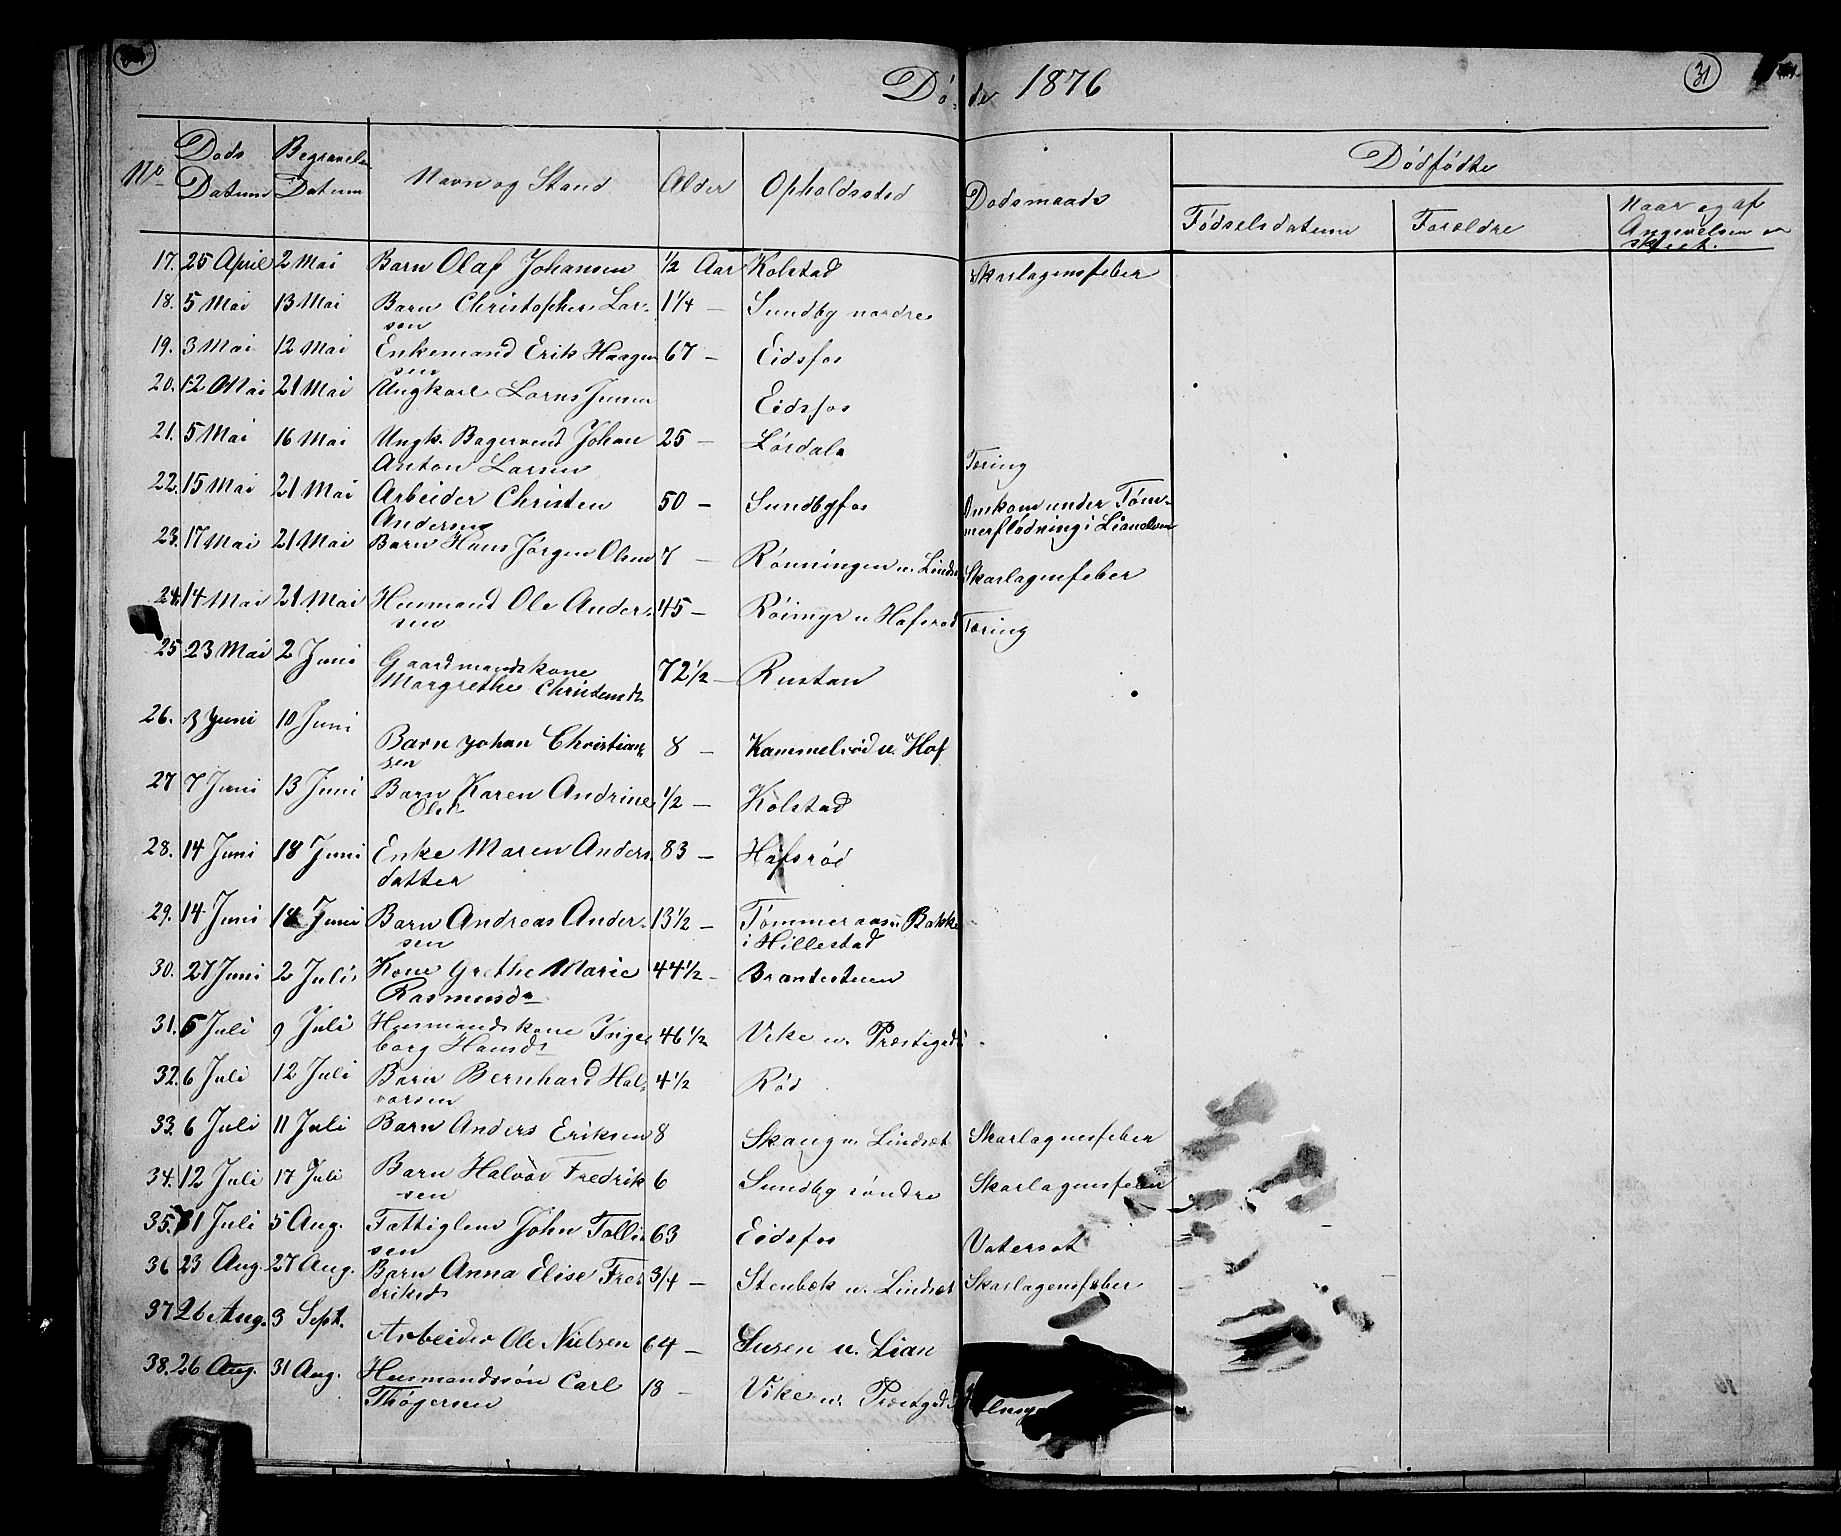 31
Døde 1876
No Dods Datum Begravelse Datum Navn og Stand Alder Opholdssted Dodsmaade Dødfødte
Fødselsdatum Forældre Naar og af Angivelsen er skeet.
17. 25 April 2 Mai Barn Olaf Johansen 1/2 Aar Kolstad Skarlagensfeber
18. 5 Mai 13 Mai Barn Christopher Lar- 1 1/4 — Sundby nordre
sen
19. 3 Mai 12 Mai Enkemand Erik Haagen 67 — Eidsfos
sen
20. 12 Mai 21 Mai Ungkarl Lorns Jensen Eidsfos
21. 5 Mai 16 Mai Ungk. Bagersvend Johan 25 — Lørdal
Anton Larsen Tæring
22. 15 Mai 21 Mai Arbeider Christen 50 — Sundbyfos Omkom under Tøm-
Andersen merflødning i Lianelven
23. 17 Mai 21 Mai Barn Hans Jørgen Olsen 7 — Rønningen u. Linds Skarlagensfeber
24. 14 Mai 21 Mai Husmand Ole Ander- 45 — Røimyr u Hafsrød Tæring
sen
25 23 Mai 2 Juni Gaardmandskone 72 1/2 — Rustan
Margrethe Christensd.
26. 3 Juni 10 Juni Barn Johan Christian 8 — Kammelrød u. Hof
sen
27 7 Juni 13 Juni Barn Karen Andrine 1/2 — Kolstad
Olsd
28. 14 Juni 18 Juni Enke Maren Anders 83 — Hafsrød
datter
29. 14 Juni 18 Juni Barn Andreas Ander- 13 1/2 — Tømmeraas u Bakke
sen i Hillestad
30. 27 Juni 2 Juli Kone Grethe Marie 44 1/2 — Brantestuen
Rasmusd.
31. 5 Juli 9 Juli Husmandskone Inge 46 1/2 Vike u. Præstegd
borg Hansd.
32. 6 Juli 12 Juli Barn Bernhard Hal 4 1/2 Rød
vorsen
33. 6 Juli 11 Juli Barn Anders Eriksen 8 Skaug u. Lindset Skarlagensfeber
34. 12 Juli 17 Juli Barn Halvor Fredrik 6 Sundby søndre Skarlagensfeber
sen
35. 31 Juli 5 Aug. Fattiglem John Tolli 63 Eidsfos Vatersot
sen
36 23 Aug. 27 Aug. Barn Anna Elise Fre 3/4 — Stenbæk u. Lindset Skarlagensfeber
driksd
37 26 Aug. 3 Sept. Arbeider Ole Nielsen 64 — Lusen u. Lian
38. 26 Aug. 31 Aug. Husmandssøn Carl 18 — Vike u. Præstegd
Thøgersen